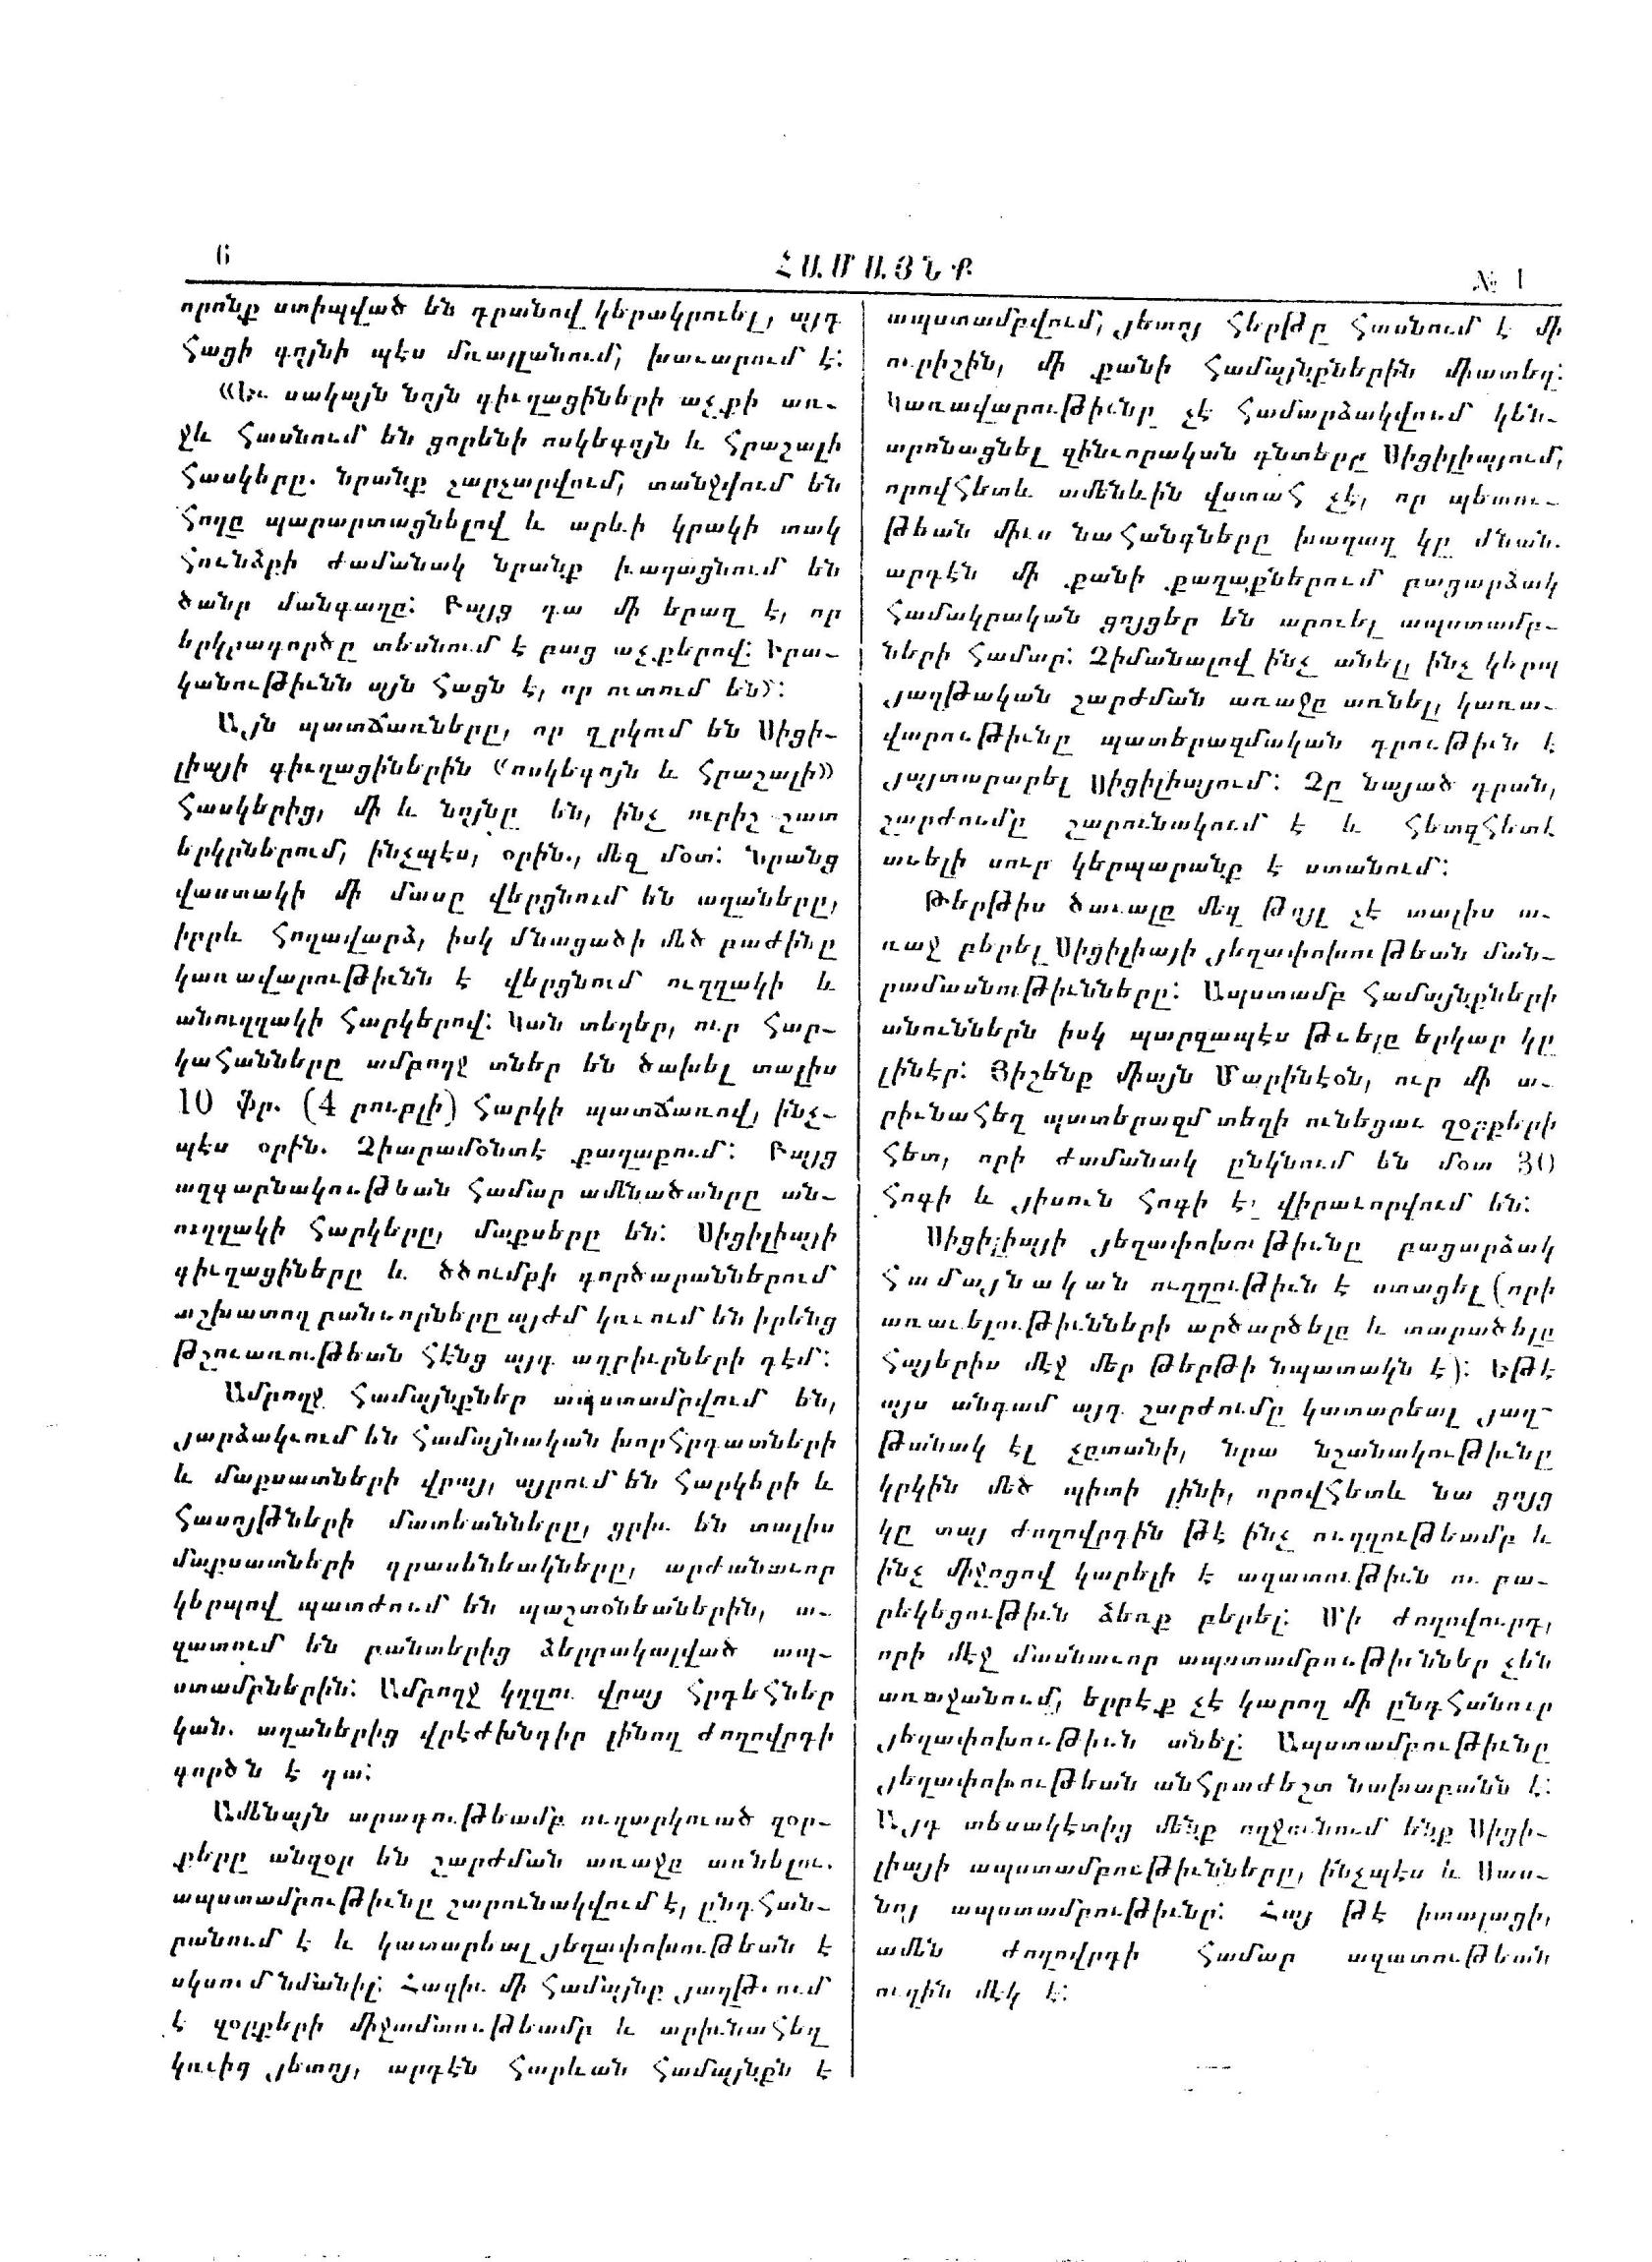 6
ՀԱՄԱՅՆՔ
№ 1
որոնք ստիպված են դրանով կերակրուել, այդ
հացի գոյնի պէս մռայլանում, խաւարում է:
«Եւ սակայն նոյն գիւղացիների աչքի առ-
ջև հասնում են ցորենի ոսկեգոյն և հրաշալի
հասկերը. նրանք չարչարվում, տանջվում են
հողը պարարտացնելով և արևի կրակի տակ
հունձքի ժամանակ նրանք խաղացնում են
ծանր մանգաղը: Բայց դա մի երազ է, որ
երկրագործը տեսնում է բաց աչքերով: Իրա-
կանութիւնն այն հացն է, որ ուտում են»:
Այն պատճառները, որ զրկում են Սիցի-
լիայի գիւղացիներին «ոսկեգոյն և հրաշալի»
հասկերից, մի և նոյնը են, ինչ ուրիշ շատ
երկրներում, ինչպէս, օրին., մեզ մօտ: Նրանց
վաստակի մի մասը վերցնում են աղաները,
իբրև հողավարձ, իսկ մնացածի մեծ բաժինը
կառավարութիւնն է վերցնում ուղղակի և
անուղղակի հարկերով: Կան տեղեր, ուր հար-
կահանները ամբողջ տներ են ծախել տալիս
10 ֆր. (4 րուբլի) հարկի պատճառով, ինչ-
պէս օրին. Զիարամօնտէ քաղաքում: Բայց
աղքարնակութեան համար ամենածանրը ան-
ուղղակի հարկերը, մաքսերը են: Սիցիլիայի
գիւղացիները և ծծումբի գործարաններում
աշխատող բանւորները այժմ կռւում են իրենց
թշուառութեան հէնց այդ աղբիւրների դէմ:
Ամբողջ համայնքներ ապստամբվում են,
յարձակւում են համայնական խորհրդատների
և մաքսատների վրայ, այրում են հարկերի և
հասոյթների մատեանները, ցրիւ են տալիս
մաքսատների դրասենեակները, արժանաւոր
կերպով պատժում են պաշտօնեաներին, ա-
զատում են բանտերից ձերբակալված ապ-
ստամբներին: Ամբողջ կղզու վրայ հրդեհներ
կան. աղաներից վրէժխնդիր լինող ժողովրդի
գործն է դա:
Ամենայն արագութեամբ ուղարկուած զօր-
քերը անզօր են շարժման առաջը առնելու.
ապստամբութիւնը շարունակվում է, ընդհան-
րանում է և կատարեալ յեղափոխութեան է
սկսում նմանիլ: Հազիւ մի համայնք յաղթւում
է զօրքերի միջամտութեամբ և արիւնահեղ
կռւից յետոյ, արդէն հարևան համայնքն է
ապստամբվում, յետոյ հերթը հասնում է մի
ուրիշին, մի քանի համայնքներին միատեղ:
Կառավարութիւնը չէ համարձակվում կեն-
արոնացնել զինւորական գնտերը Սիցիլիայում,
որովհետև ամենևին վստահ չէ, որ պետու-
թեան միւս նահանգները խաղաղ կը մնան.
արդէն մի քանի քաղաքներում բացարձակ
համակրական ցոյցեր են արուել ապստամբ-
ների համար: Չիմանալով ինչ անել, ինչ կերպ
յաղթական շարժման առաջը առնել, կառա-
վարութիւնը պատերազմական դրութիւն է
յայտարարել Սիցիլիայում: Չը նայած դրան,
շարժումը շարունակում է և հետզհետէ
աւելի սուր կերպարանք է ստանում:
Թերթիս ծաւալը մեզ թոյլ չէ տալիս ա-
ռաջ բերել Սիցիլիայի յեղափոխութեան ման-
րամասնութիւնները: Ապստամբ համայնքների
անուններն իսկ պարզապէս թւելը երկար կը
լինէր: Յիշենք միայն Մարինէօն, ուր մի ա-
րիւնահեղ պատերազմ տեղի ունեցաւ զօրքերի
հետ, որի ժամանակ ընկնում են մօտ 30
հոգի և յիսուն հոգի էլ վիրաւորվում են:
Սիցիլիայի յեղափոխութիւնը բացարձակ
համայնական ուղղութիւն է ստացել (որի
առաւելութիւնների արծարծելը և տարածելը
հայերիս մէջ մեր թերթի նպատակն է): Եթէ
այս անգամ այդ շարժումը կատարեալ յաղ-
թանակ էլ չըտանի, նրա նշանակութիւնը
կրկին մեծ պիտի լինի, որովհետև նա ցոյց
կը տայ ժողովրդին թէ ինչ ուղղութեամբ և
ինչ միջոցով կարելի է ազատութիւն ու բա-
րեկեցութիւն ձեռք բերել: Մի ժողովուրդ,
որի մէջ մասնաւոր ապստամբութիւններ չեն
առաջանում, երբէք չէ կարող մի ընդհանուր
յեղափոխութիւն անել: Ապստամբութիւնը
յեղափոխութեան անհրաժեշտ նախաբանն է:
Այդ տեսակէտից մենք ողջունում ենք Սիցի-
լիայի ապստամբութիւնները, ինչպէս և Սաս-
նոյ ապստամբութիւնը: Հայ թէ իտալացի,
ամեն ժողովրդի համար ազատութեան
ուղին մէկ է: